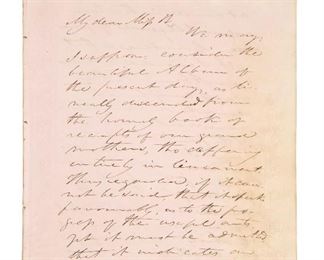 My dear Miss B,
We may,
I suppose consider the
beautiful Album of
the present day, as li-
neally descended from
the homely book of
receipts of our grand
mothers, tho differing
entirely in
Thus regarded, if it can
not be said, that it speaks
favourably, as to the pro-
gress of the useful arts
yet it must be admitted
that it indicates an